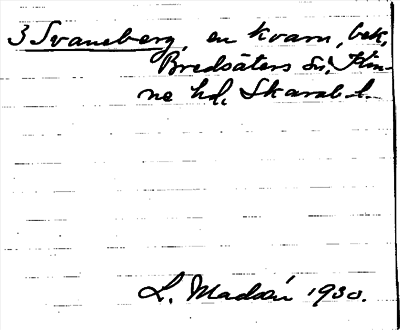 3 Svaneberg, en kvarn, bek.
Bredsäters sn, Kin-
ne hd, Skarab. l.
L. Madsén 1930.